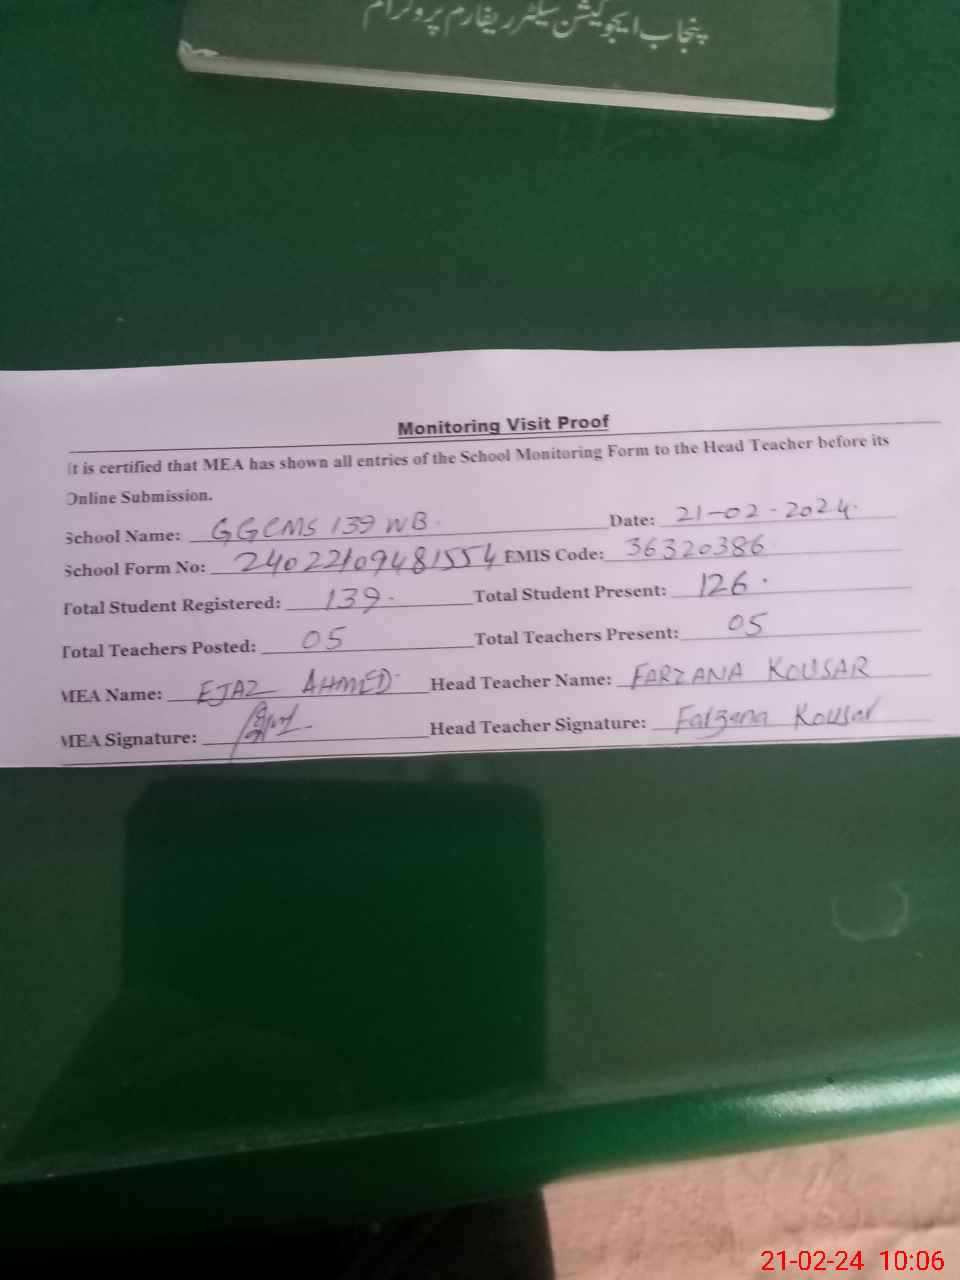 پنجاب ایجوکیشن سیکٹر ریفارم پروگرام
Monitoring Visit Proof
It is certified that MEA has shown all entries of the School Monitoring Form to the Head Teacher before its
Online Submission.
School Name: GGCMS 139 WB. Date: 21-02-2024.
School Form No: 24022109481554 EMIS Code: 36320386
Total Student Registered: 139. Total Student Present: 126.
Total Teachers Posted: 05 Total Teachers Present: 05
MEA Name: EJAZ AHMED Head Teacher Name: FARZANA KOUSAR
MEA Signature: Head Teacher Signature: Farzana Kousar
21-02-24 10:06